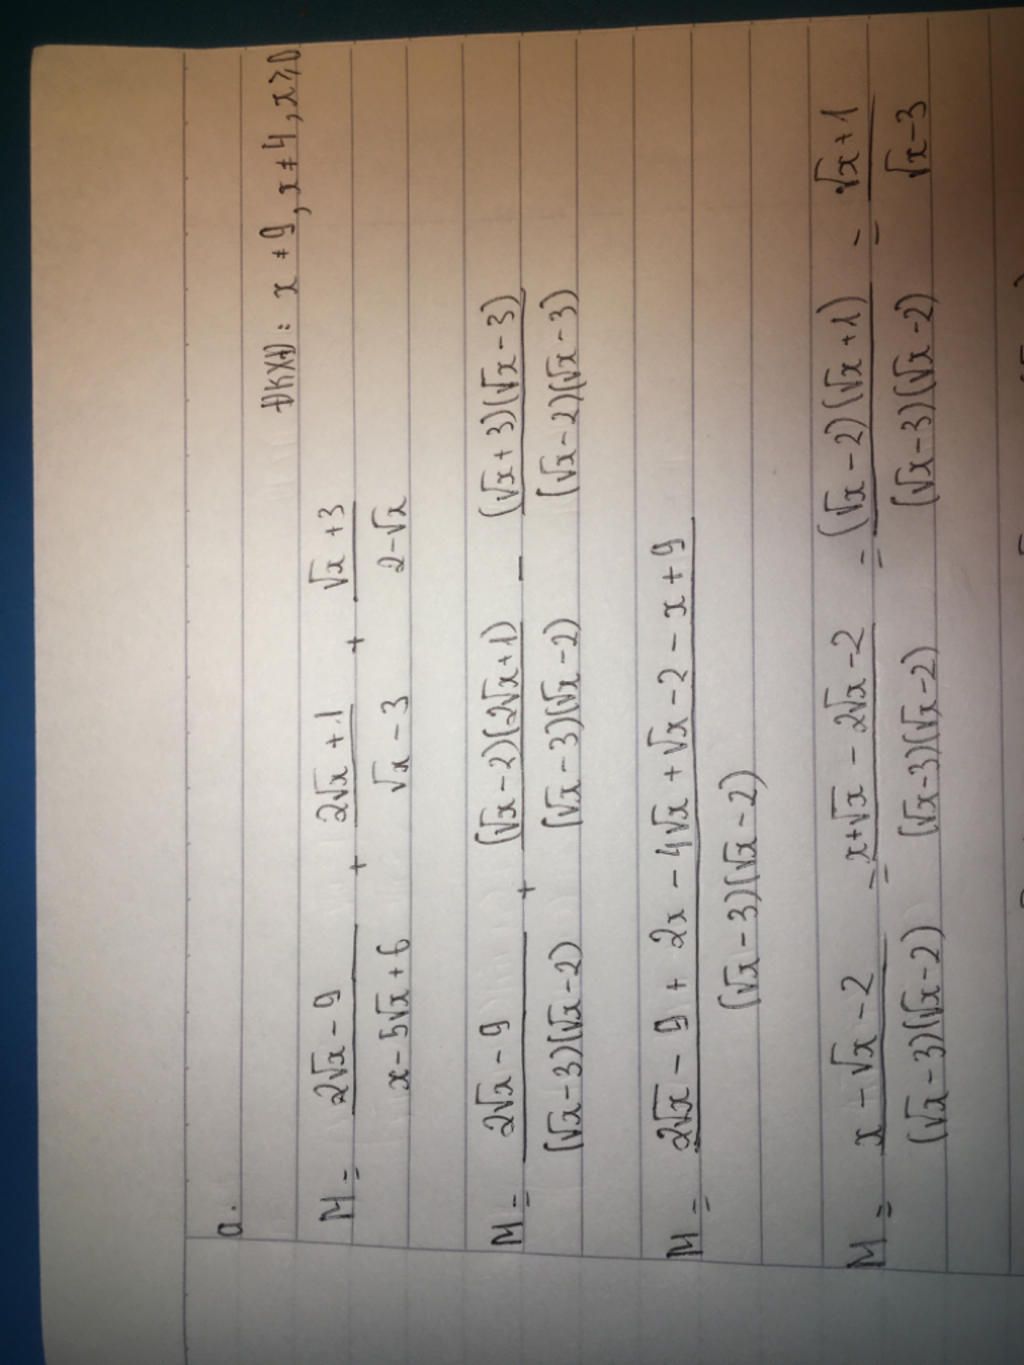 a.
ĐKXĐ: x ≠ 9, x ≠ 4, x ≥ 0
M = (2√x - 9)/(x - 5√x + 6) + (2√x + 1)/(√x - 3) + (√x + 3)/(2 - √x)
M = (2√x - 9)/((√x - 3)(√x - 2)) + ((√x - 2)(2√x + 1))/((√x - 3)(√x - 2)) - ((√x + 3)(√x - 3))/((√x - 2)(√x - 3))
M = (2√x - 9 + 2x - 4√x + √x - 2 - x + 9)/((√x - 3)(√x - 2))
M = (x - √x - 2)/((√x - 3)(√x - 2)) = (x + √x - 2√x - 2)/((√x - 3)(√x - 2)) = ((√x - 2)(√x + 1))/((√x - 3)(√x - 2)) = (√x + 1)/(√x - 3)